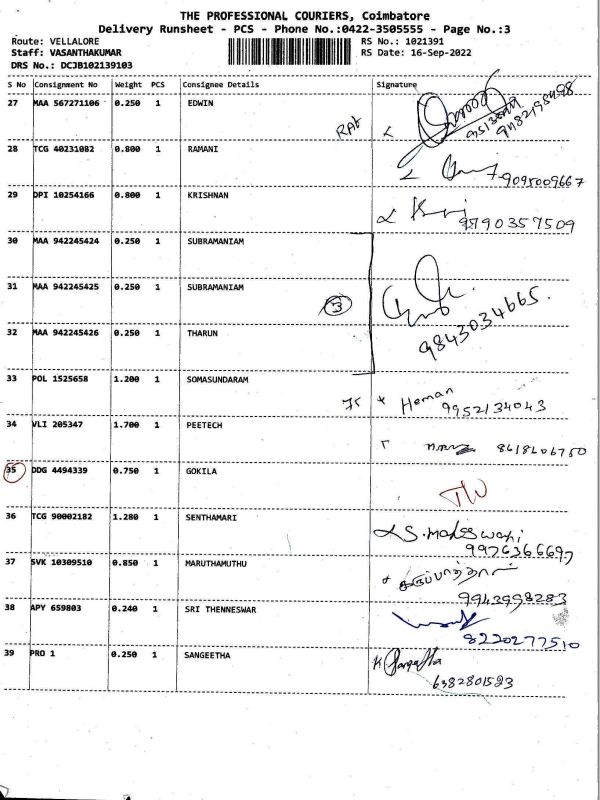 THE PROFESSIONAL COURIERS, Coimbatore
Delivery Runsheet - PCS - Phone No.:0422-3505555 - Page No.:3
Route: VELLALORE RS No.: 1021391
Staff: VASANTHAKUMAR RS Date: 16-Sep-2022
DRS No.: DCJB102139103
S No Consignment No Weight PCS Consignee Details Signature
27 MAA 567271106 0.250 1 EDWIN
28 TCG 40231082 0.800 1 RAMANI
9095009667
29 DPI 10254166 0.800 1 KRISHNAN
9790357509
30 MAA 942245424 0.250 1 SUBRAMANIAM
31 MAA 942245425 0.250 1 SUBRAMANIAM
3
32 MAA 942245426 0.250 1 THARUN
9843034665.
33 POL 1525658 1.200 1 SOMASUNDARAM
Heman
9952134043
34 VLI 205347 1.700 1 PEETECH
35 DDG 4494339 0.750 1 GOKILA
36 TCG 90002182 1.280 1 SENTHAMARI
9976366697
37 SVK 10309510 0.850 1 MARUTHAMUTHU
கருப்பாத்தாள்
9943998283
38 APY 659803 0.240 1 SRI THENNESWAR
8220277510
39 PRO 1 0.250 1 SANGEETHA
6382801583